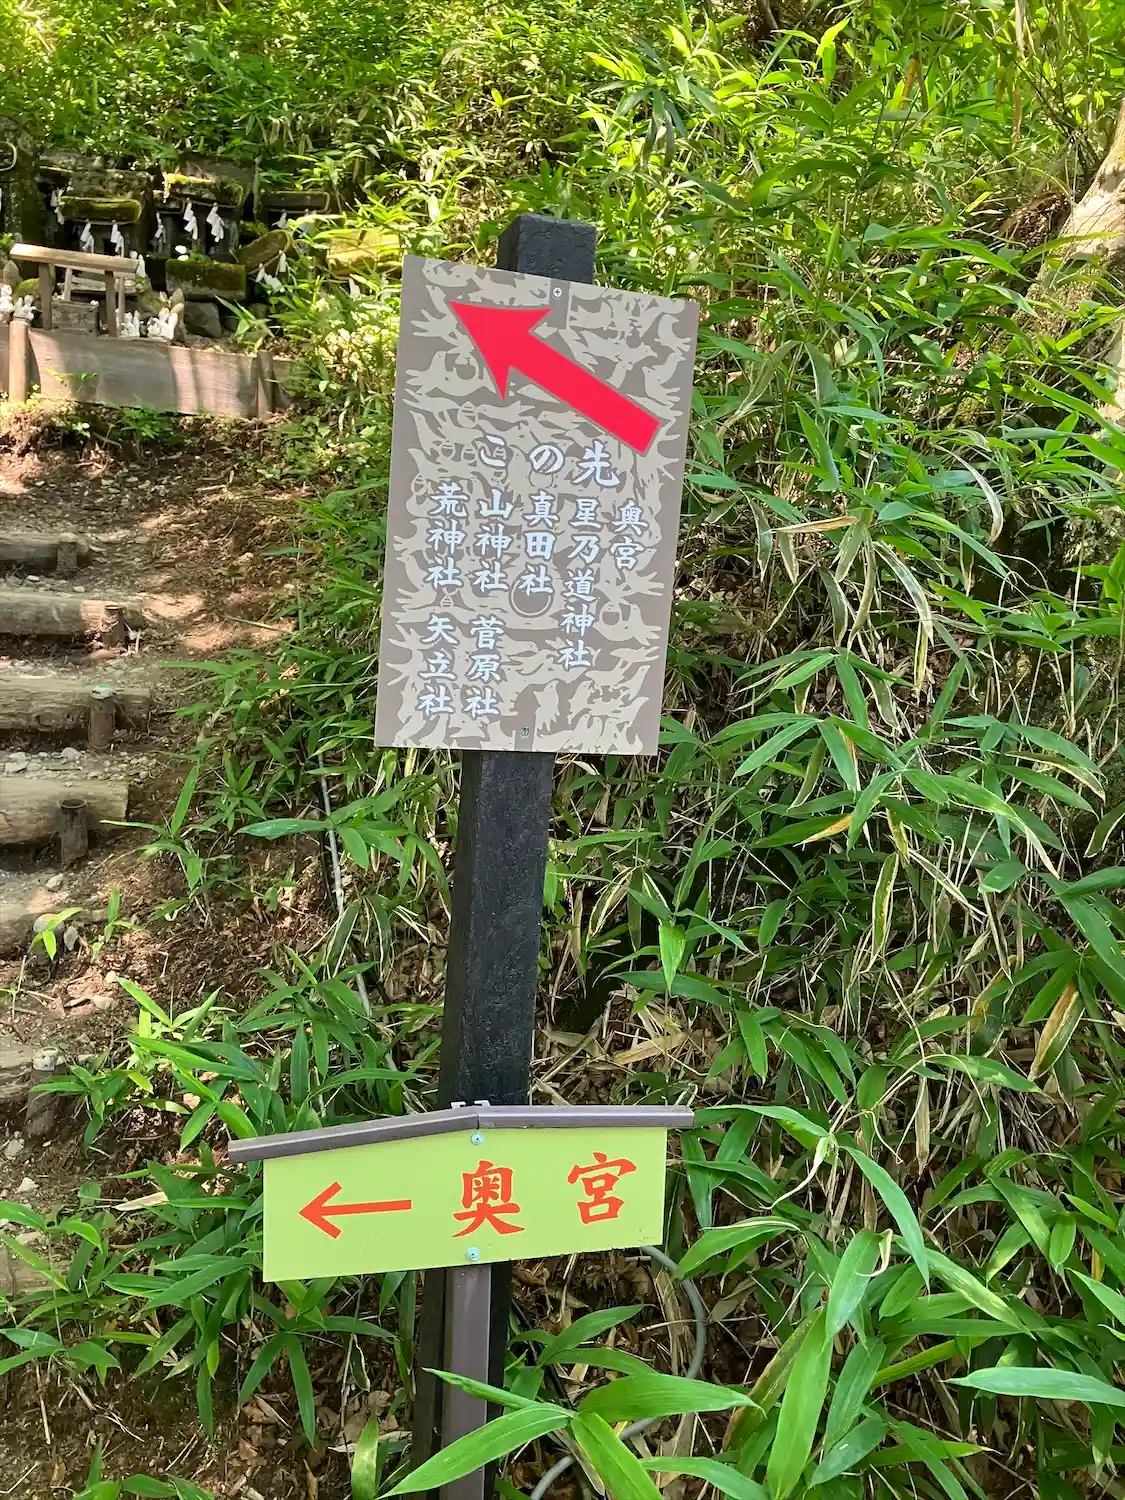 この先
奥宮
星乃道神社
真田社
山神社 菅原社
荒神社 矢立社
← 奥宮